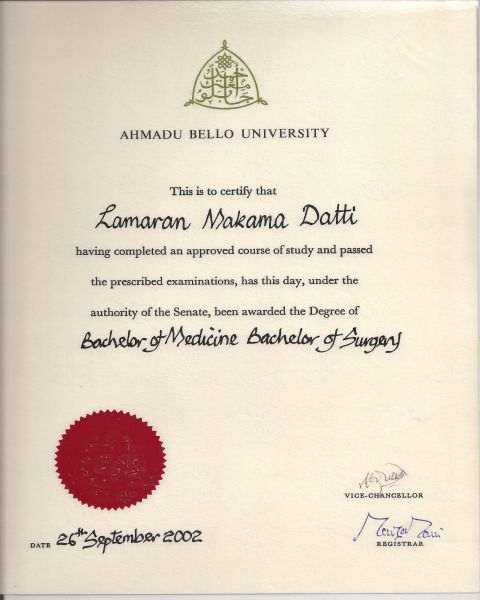 AHMADU BELLO UNIVERSITY
This is to certify that
Lamaran Makama Datti
having completed an approved course of study and passed
the prescribed examinations, has this day, under the
authority of the Senate, been awarded the Degree of
Bachelor of Medicine Bachelor of Surgery
VICE-CHANCELLOR
DATE 26th September 2002
REGISTRAR